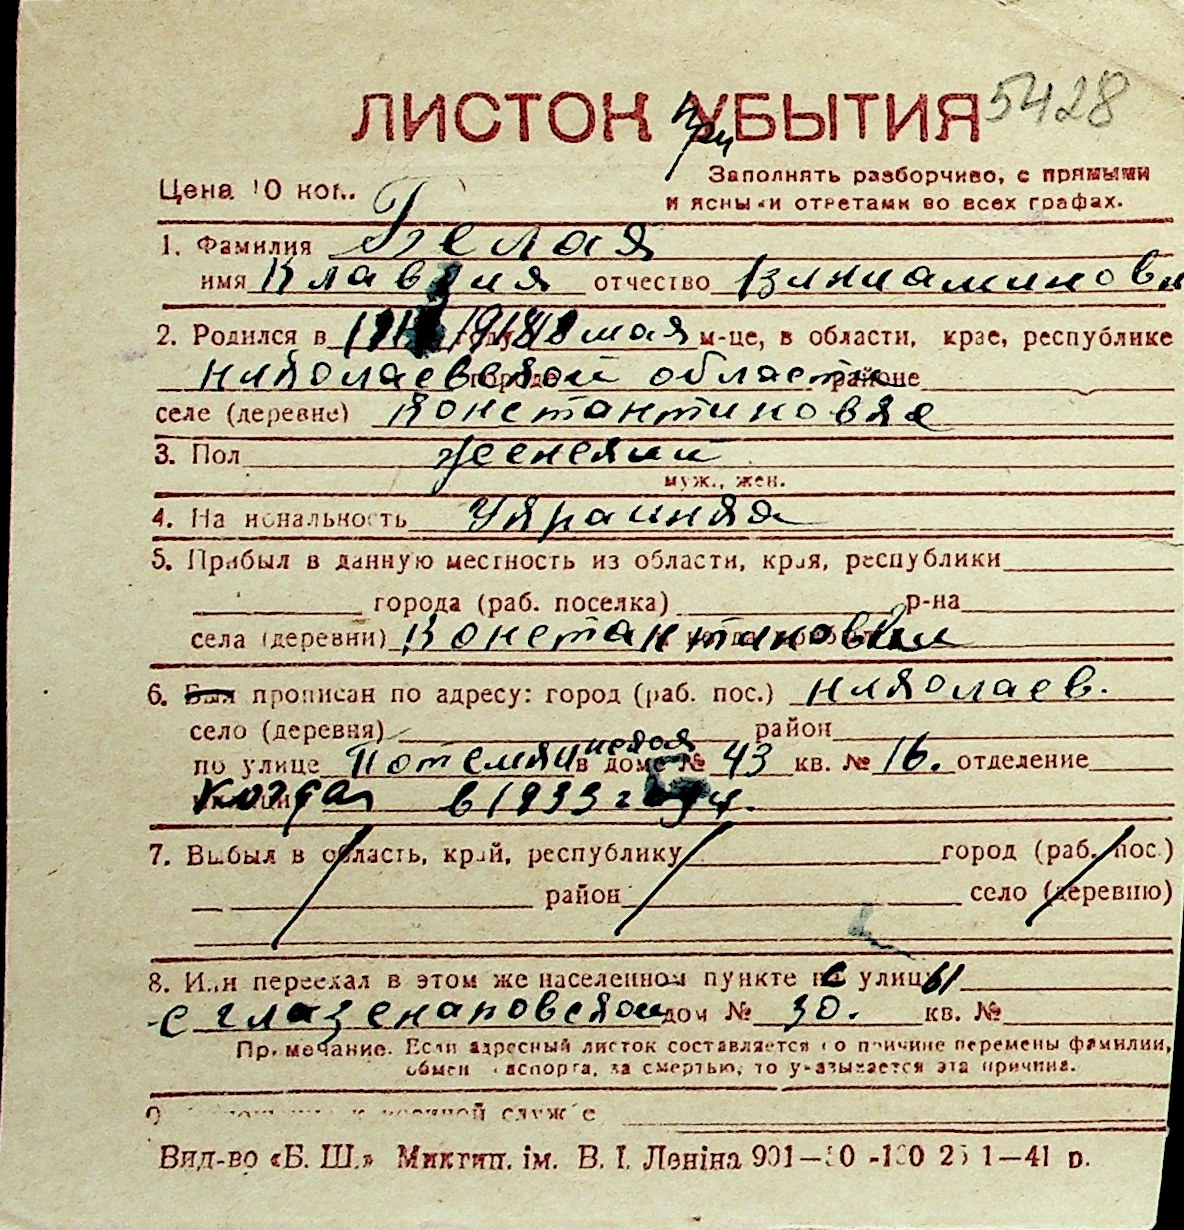 ЛИСТОК УБЫТИЯ при 5428
Цена 10 коп.
Заполнять разборчиво, с прямыми
и ясными ответами во всех графах.
1. Фамилия Белая
имя Клавдия отчество Виниаминовн
2. Родился в году 1918 18 мая м-це, в области, крае, республике
николаевской области городе районе
селе (деревне) Константиновка
3. Пол женский
муж., жен.
4. Национальность Украинка
5. Прибыл в данную местность из области, края, республики
города (раб. поселка) р-на
села (деревни) Константиновки
6. Был прописан по адресу: город (раб. пос.) николаев.
село (деревня) район
по улице Потемкинская в доме № 43 кв. № 16. отделение
когда в 1933 году.
7. Выбыл в область, край, республику город (раб. пос.)
район село (деревню)
8. Или переехал в этом же населенном пункте с улицы
с глазенаповской дом № 30. кв. №
Примечание. Если адресный листок составляется по причине перемены фамилии,
обмен паспорта, за смертью, то указывается эта причина.
9 к военной службе
Вид-во «Б. Ш.» Миктип. ім. В. І. Леніна 1—41 р.